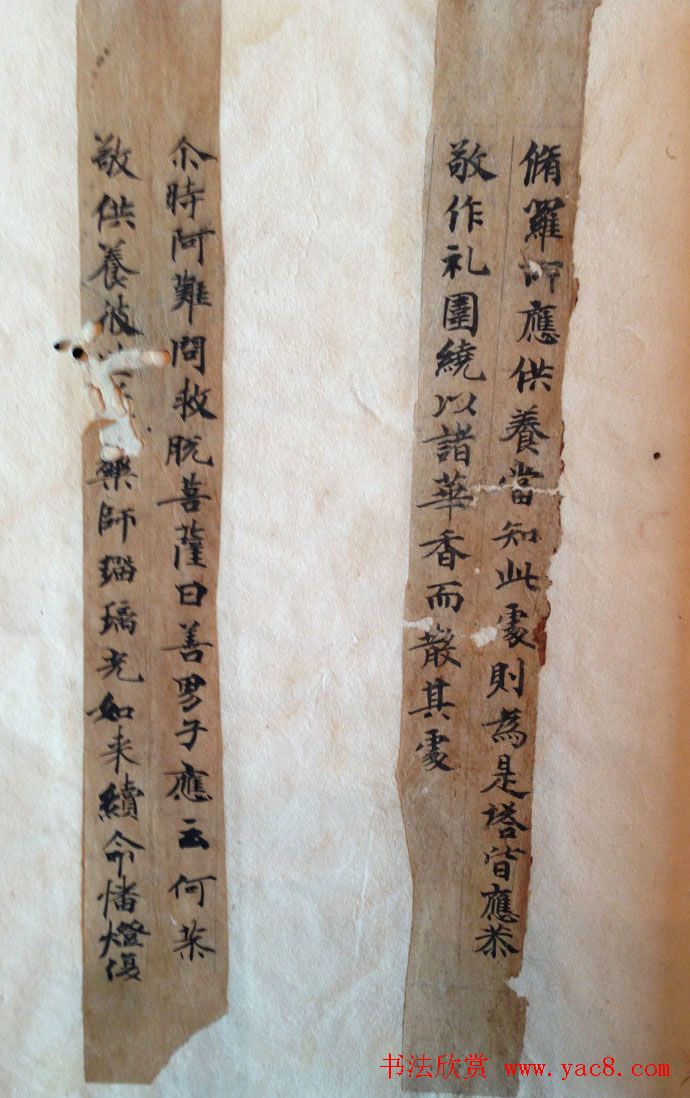 脩羅所應供養當知此處則為是塔皆應恭
敬作礼圍繞以諸華香而散其處
尒時阿難問救脫菩薩曰善男子應云何恭
敬供養彼世 藥師瑠璃光如来續命幡燈復
书法欣赏 www.yac8.com